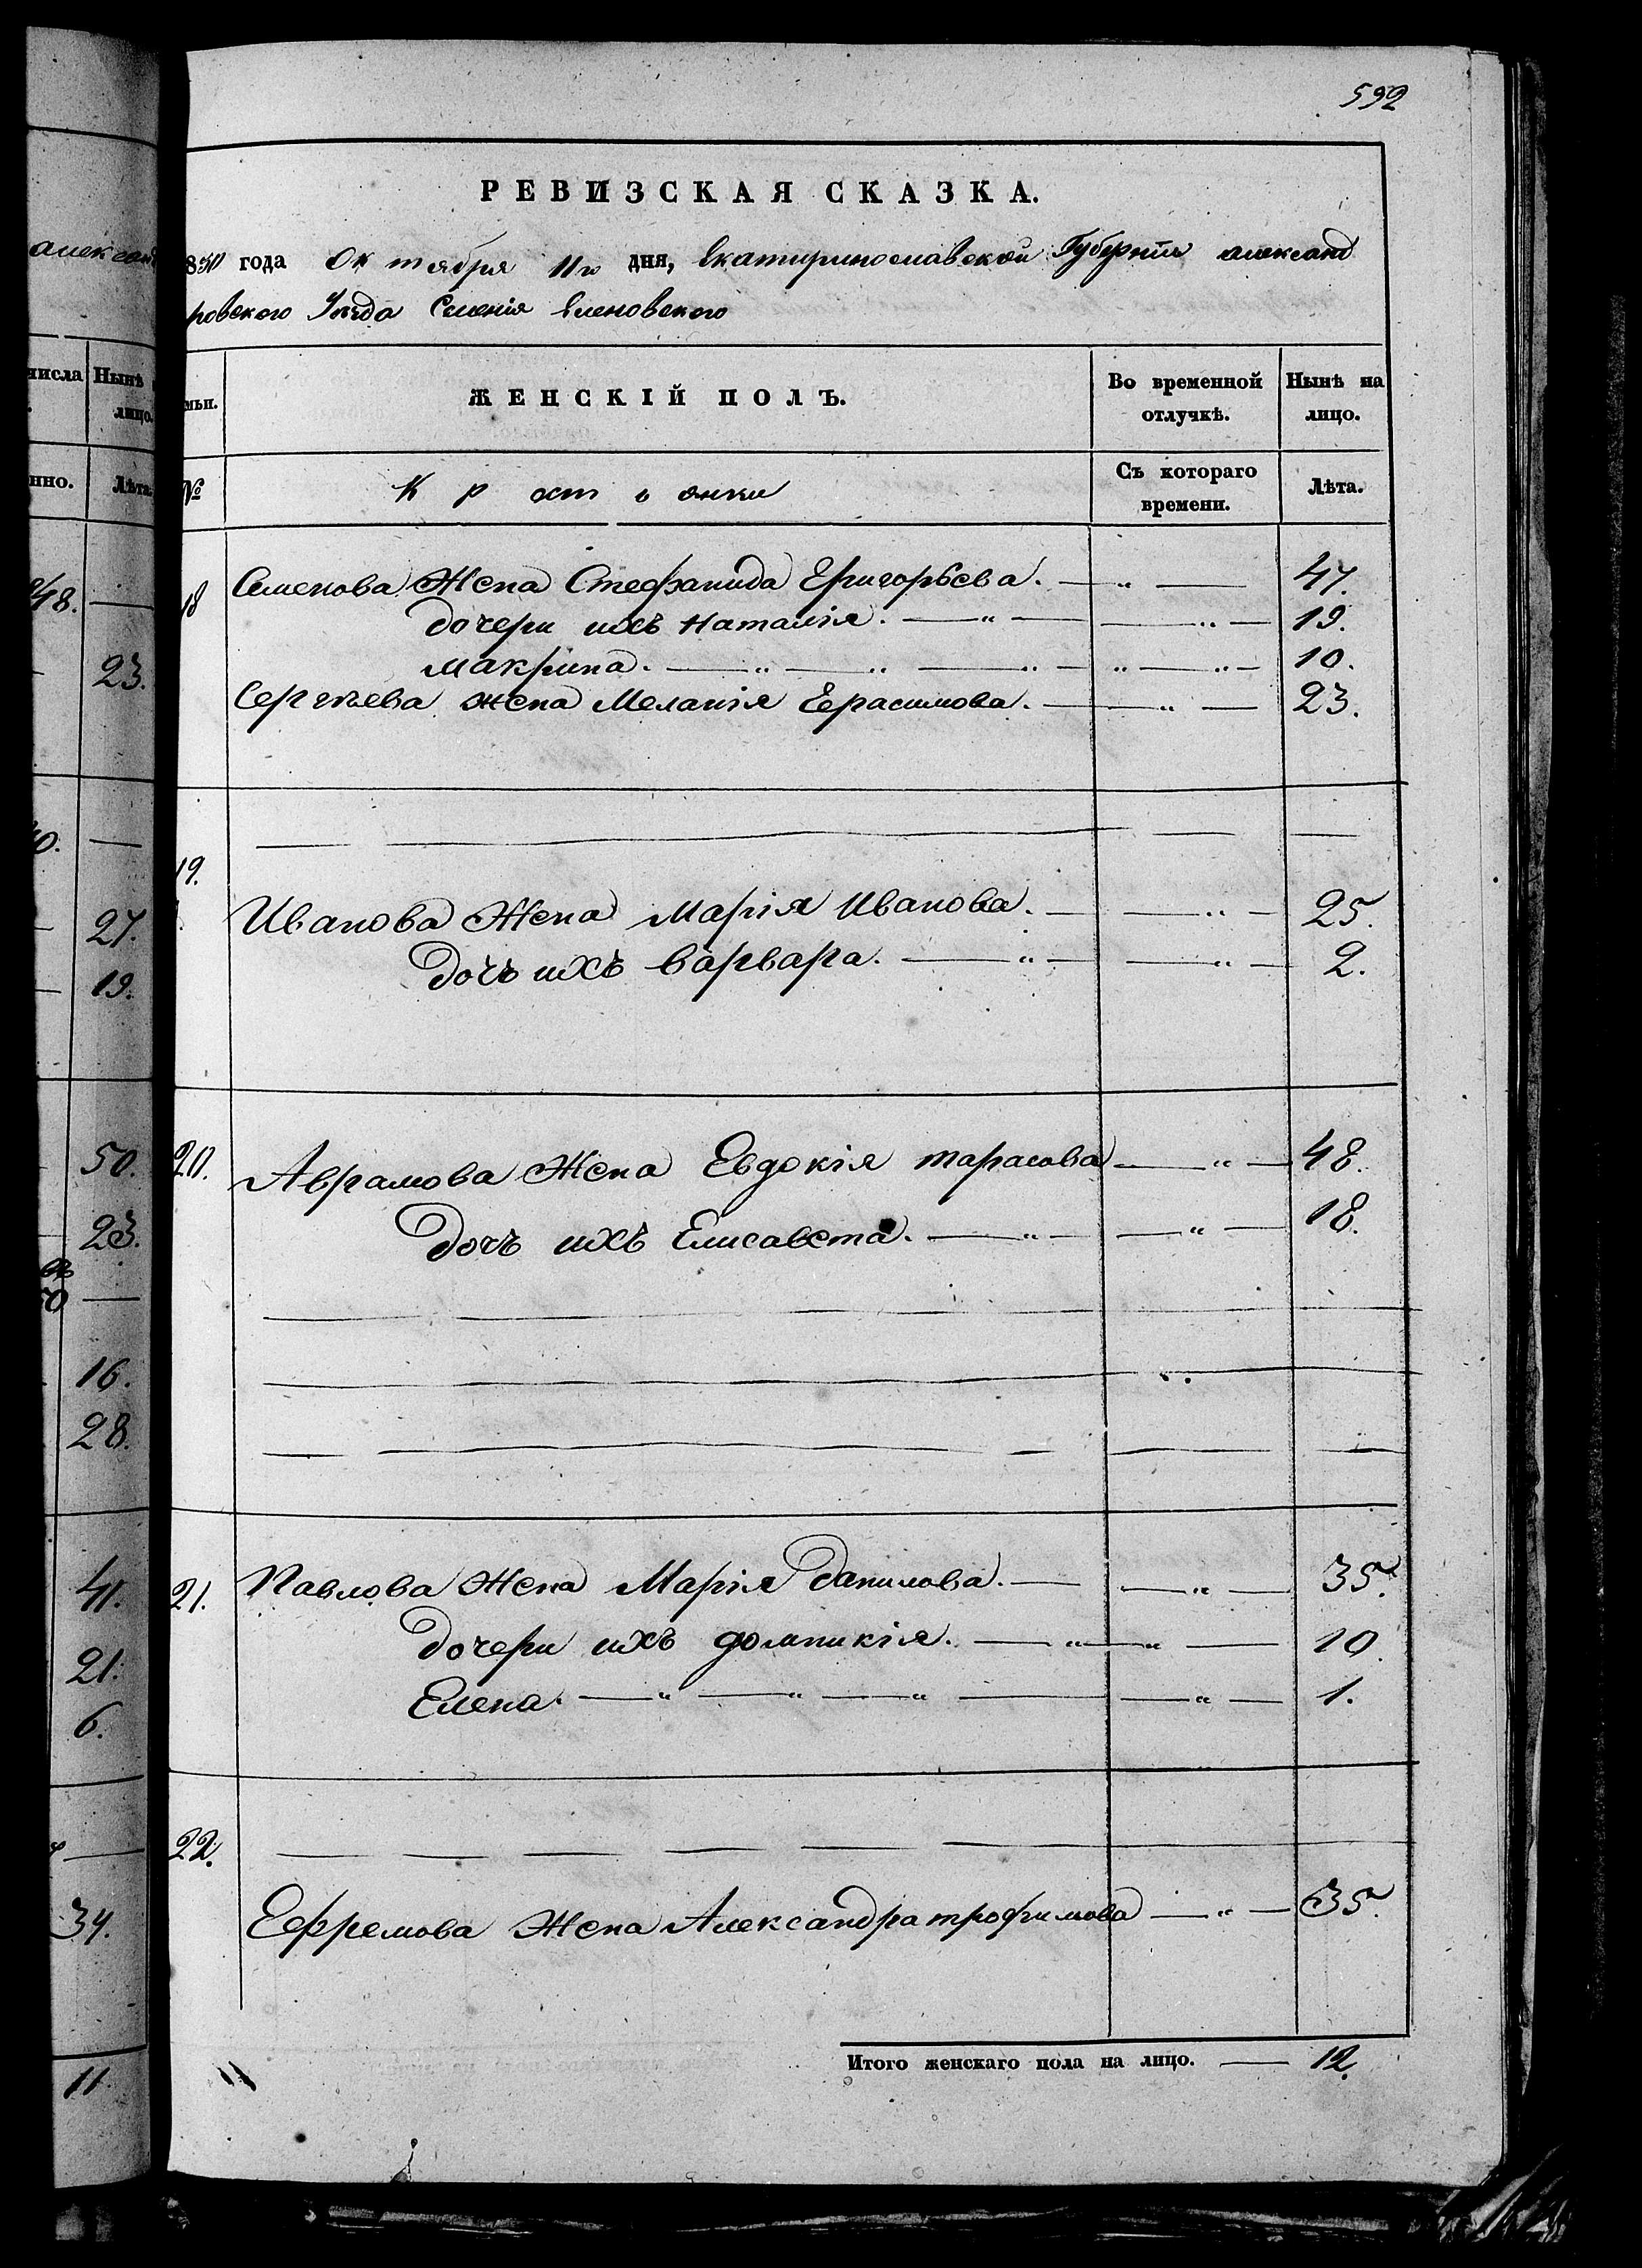 592
РЕВИЗСКАЯ СКАЗКА.
850 года Октября 11го дня, Екатеринославской Губернiи александ
ровского Уѣзда Селенiя Еленовского
мьи. ЖЕНСКIЙ ПОЛЪ. Во временной отлучкѣ. Нынѣ на лицо.
№ Крестьянки Съ котораго времени. Лѣта.
18 Семенова Жена Стефанида Григорьева. — „ — 47.
дочери ихъ Наталiя. — „ — — „ — 19.
Макрина. — „ — „ — „ — „ — „ — 10.
Сергѣева жена Меланiя Герасимова. — — „ — 23.
19.
Иванова Жена Марiя Иванова. — — „ — 25.
Дочь ихъ Варвара. — „ — — „ — 2.
20. Аврамова Жена Евдокiя тарасова — „ — 48.
Дочь ихъ Елисавета. — „ — — „ — 18.
21. Павлова Жена Марiя Данилова. — — „ — 35.
Дочери ихъ домникiя. — „ — „ — 10.
Елена. — „ — „ — „ — — „ — 1.
22.
Ефремова Жена Александра трофимова — „ — 35.
Итого женскаго пола на лицо. — 12.
александ
числа Нынѣ
лицо.
нно. Лѣта.
48. —
23.
40. —
27.
19.
50.
23.
50 —
16.
28.
41.
21.
6.
34.
11.